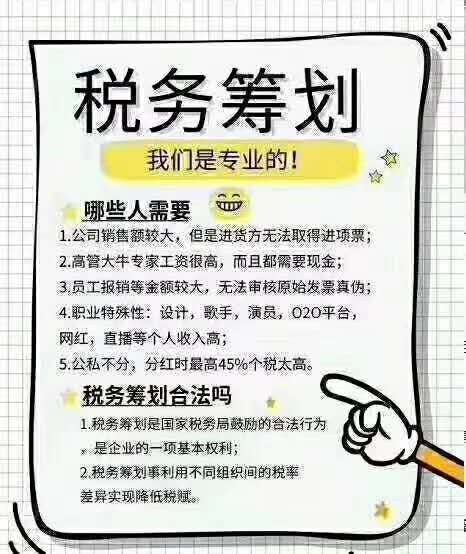 税务筹划
我们是专业的！
哪些人需要
1.公司销售额较大，但是进货方无法取得进项票；
2.高管大牛专家工资很高，而且都需要现金；
3.员工报销等金额较大，无法审核原始发票真伪；
4.职业特殊性：设计，歌手，演员，O2O平台，
网红，直播等个人收入高；
5.公私不分，分红时最高45%个税太高。
税务筹划合法吗
1.税务筹划是国家税务局鼓励的合法行为
，是企业的一项基本权利；
2.税务筹划事利用不同组织间的税率
差异实现降低税赋。